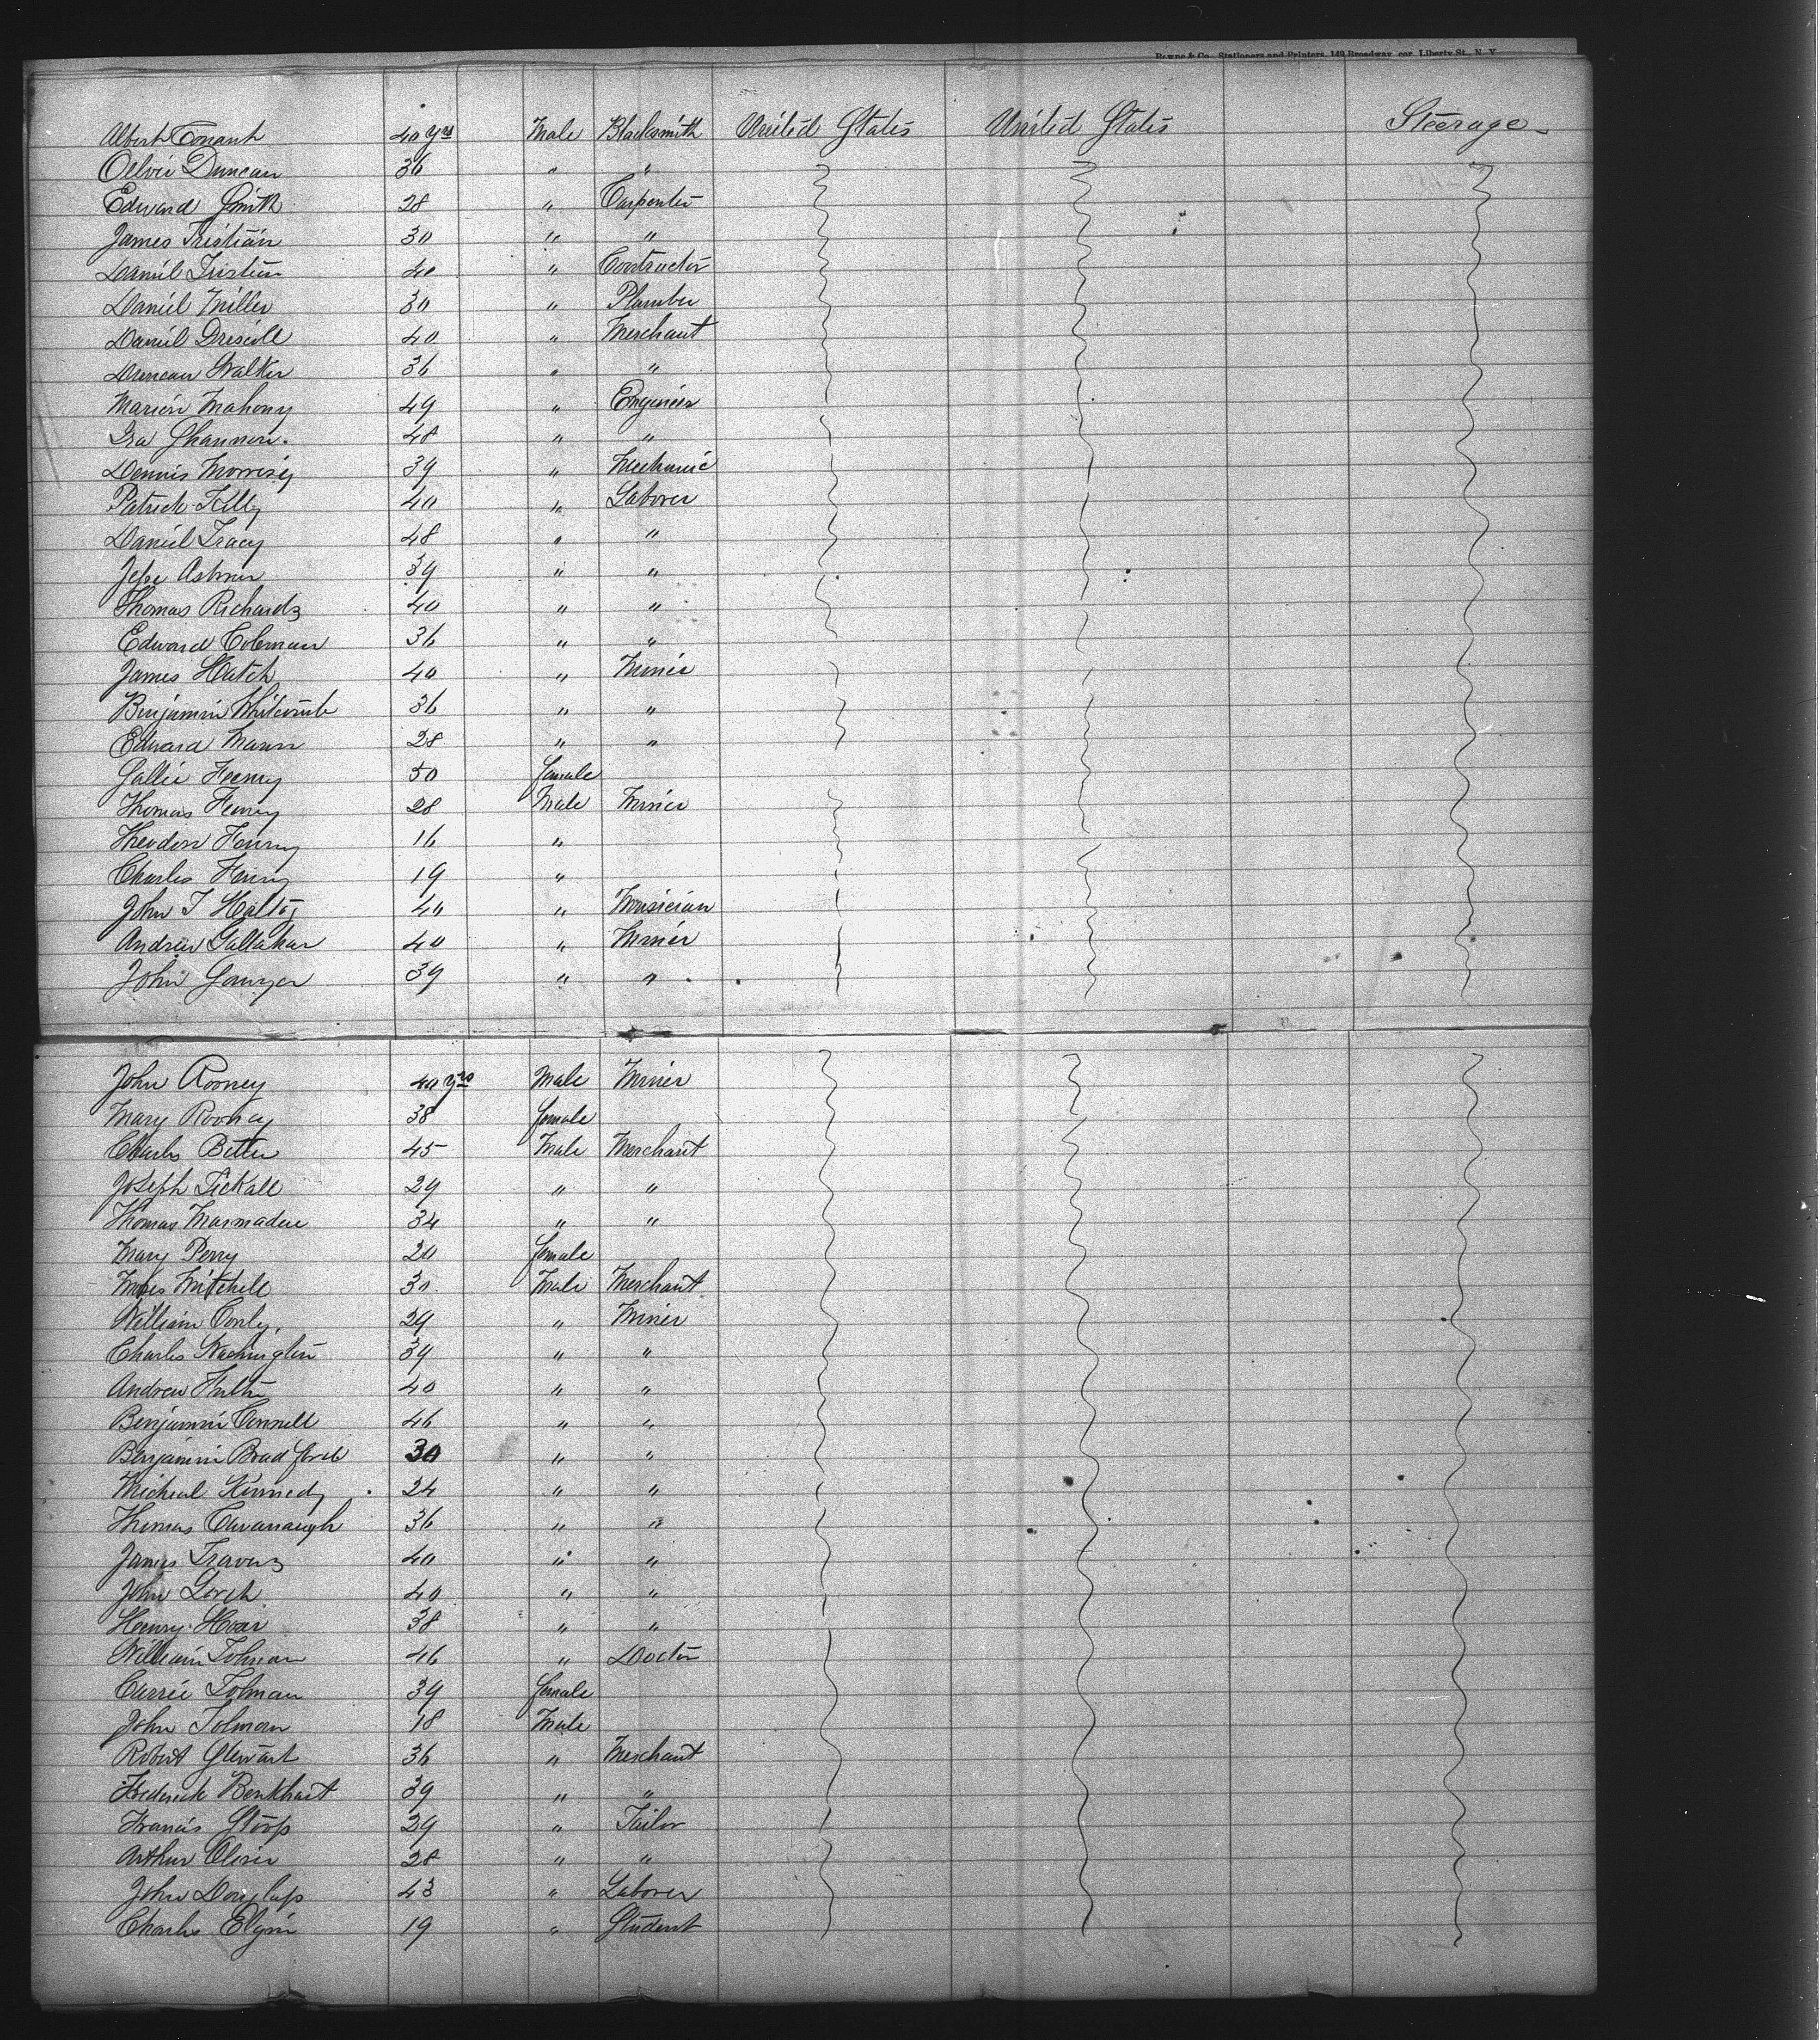 Bowne & Co., Stationers and Printers, 149 Broadway, cor. Liberty St., N. Y.
Albert Conant 40 yrs Male Blacksmith United States United States Steerage
Oliver Duncan 36 " "
Edward Smith 28 " Carpenter
James Tristian 30 " "
Daniel Tristian 40 " Contractor
Daniel Miller 30 " Plumber
Daniel Driscoll 40 " Merchant
Duncan Walker 36 " "
Marion Mahony 49 " Engineer
Ira Shannon. 48 " "
Dennis Morrisey 39 " Mechanic
Patrick Kelly 40 " Laborer
Daniel Tracy 48 " "
Jesse 39 " "
Thomas Richards 40 " "
Edward Coleman 36 " "
James Hatch 40 " Miner
Benjamin Whitcomb 36 " "
Edward Mann 28 " "
Sallie Feeney 50 female
Thomas Feeney 28 Male Miner
Theodore Feeney 16 "
Charles Feeney 19 "
John T 40 " Musician
Andrew Gallahar 40 " Miner
John Sawyer 39 " "
John Rooney 40 yrs Male Miner
Mary Rooney 38 female
Charles Better 45 Male Merchant
Joseph Tickall 29 " "
Thomas Marmadue 34 " "
Mary Perry 20 female
Mitchell 30 Male Merchant
William Conly, 29 " Miner
Charles Washington 39 " "
Andrew 40 " "
Benjamin Connell 46 " "
Benjamin Bradford 30 " "
Micheal Kennedy 24 " "
Thomas Cavanaugh 36 " "
James Travers 40 " "
John Lorch 40 " "
Henry Hoar 38 " "
William Tolman 46 " Doctor
Carrie Tolman 39 female
John Tolman 18 Male
Robert Stewart 36 " Merchant
Frederick Benkhart 39 " "
Francis Stoop 29 " Tailor
Arthur Oliver 28 " "
John Douglass 43 " Laborer
Charles Elgin 19 " Student